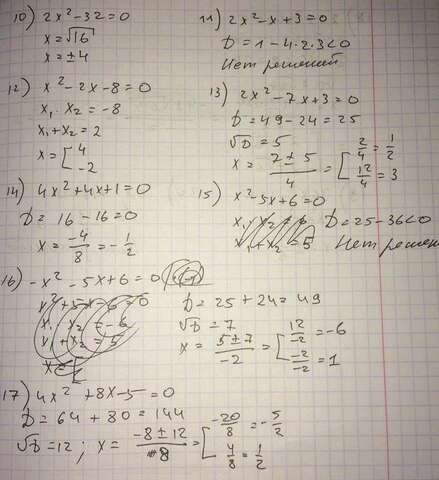 10) 2x² - 32 = 0
x = √16
x = ± 4
11) 2x² - x + 3 = 0
D = 1 - 4·2·3 < 0
Нет решений
12) x² - 2x - 8 = 0
x₁ · x₂ = -8
x₁ + x₂ = 2
x = [ 4
-2
13) 2x² - 7x + 3 = 0
D = 49 - 24 = 25
√D = 5
x = (7 ± 5)/4 = [ 2/4 = 1/2
12/4 = 3
14) 4x² + 4x + 1 = 0
D = 16 - 16 = 0
x = -4/8 = -1/2
15) x² - 5x + 6 = 0
x₁ · x₂ = 6
x₁ + x₂ = 5
D = 25 - 36 < 0
Нет решений
16) -x² - 5x + 6 = 0
x² + 5x - 6 = 0
x₁ · x₂ = -6
x₁ + x₂ = 5
x = [
D = 25 + 24 = 49
√D = 7
x = (5 ± 7)/-2 = [ 12/-2 = -6
-2/-2 = 1
17) 4x² + 8x - 5 = 0
D = 64 + 80 = 144
√D = 12 ; x = (-8 ± 12)/8 = [ -20/8 = -5/2
4/8 = 1/2